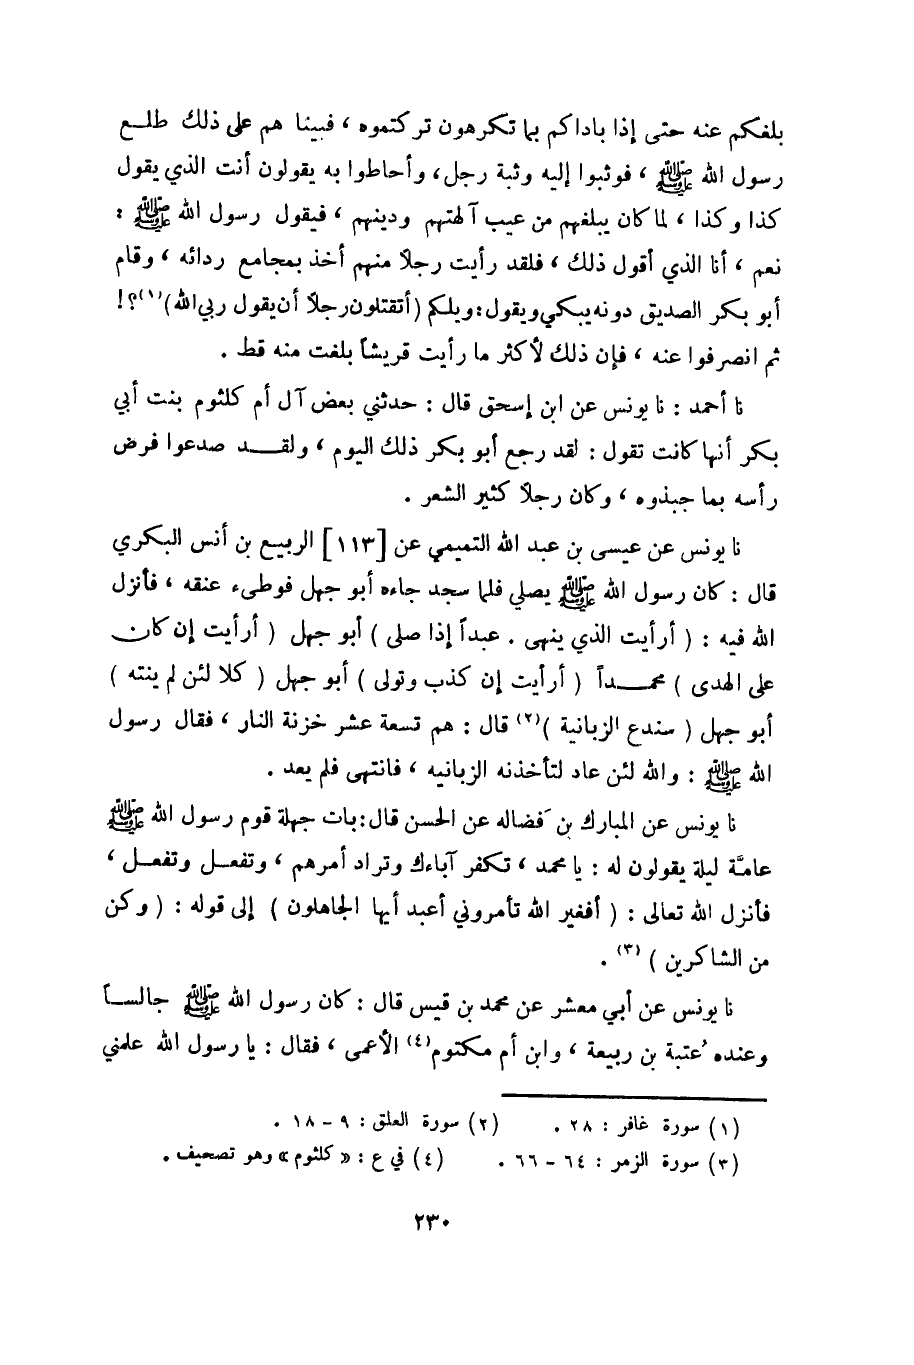 بلغكم عنه حتى إذا باداكم بما تكرهون تركتموه ، فبينا هم على ذلك طلع
رسول الله ﷺ ، فوثبوا إليه وثبة رجل، وأحاطوا به يقولون أنت الذي يقول
كذا وكذا ، لما كان يبلغهم من عيب آلهتهم ودينهم ، فيقول رسول الله ﷺ :
نعم ، أنا الذي أقول ذلك ، فلقد رأيت رجلاً منهم أخذ بمجامع ردائه ، وقام
أبو بكر الصديق دونه يبكي ويقول : ويلكم (أتقتلون رجلاً أن يقول ربي الله)(١)؟!
ثم انصرفوا عنه ، فإن ذلك لأكثر ما رأيت قريشاً بلغت منه قط .
نا أحمد : نا يونس عن ابن إسحق قال : حدثني بعض آل أم كلثوم بنت أبي
بكر أنها كانت تقول : لقد رجع أبو بكر ذلك اليوم ، ولقد صدعوا فرض
رأسه بما جبذوه ، وكان رجلاً كثير الشعر .
نا يونس عن عيسى بن عبد الله التميمي عن [١١٣] الربيع بن أنس البكري
قال : كان رسول الله ﷺ يصلي فلما سجد جاءه أبو جهل فوطىء عنقه ، فأنزل
الله فيه : ( أرأيت الذي ينهى . عبداً إذا صلى ) أبو جهل ( أرأيت إن كان
على الهدى ) محمداً ( أرأيت إن كذب وتولى ) أبو جهل ( كلا لئن لم ينته )
أبو جهل ( سندع الزبانية )(٢) قال : هم تسعة عشر خزنة النار ، فقال رسول
الله ﷺ : والله لئن عاد لتأخذنه الزبانيه ، فانتهى فلم يعد .
نا يونس عن المبارك بن فَضاله عن الحسن قال : بات جهلة قوم رسول الله ﷺ
عامَّة ليلة يقولون له : يا محمد ، تكفر آباءك وتراد أمرهم ، وتفعل وتفعل ،
فأنزل الله تعالى : ( أفغير الله تأمروني أعبد أيها الجاهلون ) إلى قوله : ( وكن
من الشاكرين ) (٣) .
نا يونس عن أبي معشر عن محمد بن قيس قال : كان رسول الله ﷺ جالساً
وعنده عُتبة بن ربيعة ، وابن أم مكتوم(٤) الأعمى ، فقال : يا رسول الله علمني
(١) سورة غافر : ٢٨ . (٢) سورة العلق : ٩ - ١٨ .
(٣) سورة الزمر : ٦٤ - ٦٦ . (٤) في ع : « كلثوم » وهو تصحيف .
٢٣٠